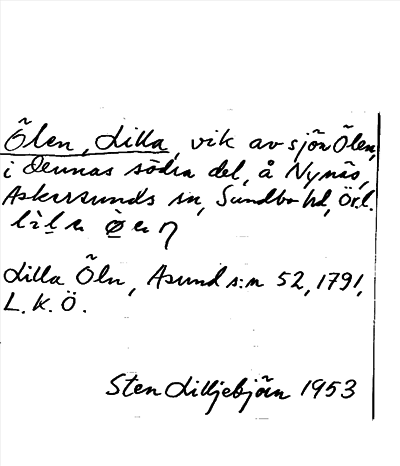 Ölen, Lilla, vik av sjön Ölen,
i dennas södra del, å Nynäs,
Askersunds sn, Sundbo hd, Ör.l.
Lilla Öln, Asund s:n 52, 1791,
L. K. Ö.
Sten Lilljebjörn 1953